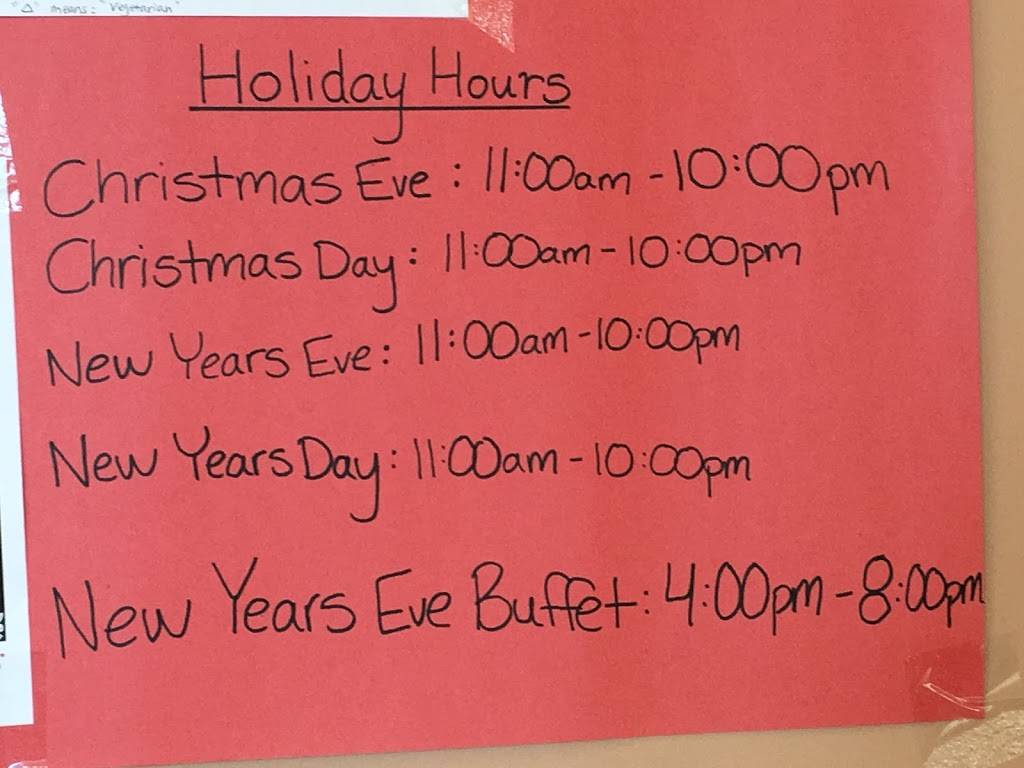 "△" means: "Vegetarian"
Holiday Hours
Christmas Eve: 11:00am - 10:00pm
Christmas Day: 11:00am - 10:00pm
New Years Eve: 11:00am - 10:00pm
New Years Day: 11:00am - 10:00pm
New Years Eve Buffet: 4:00pm - 8:00pm